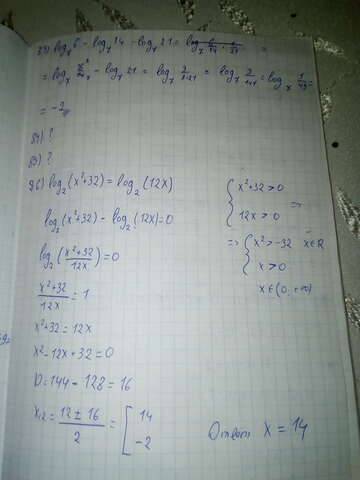 33) log₇ 6 - log₇ 14 - log₇ 21 =
= log₇ - log₇ 21 = log₇ = log₇ = log₇ 1/49 =
= -2
84) ?
85) ?
86) log₂(x²+32) = log₂(12x)
log₂(x²+32) - log₂(12x) = 0
log₂((x²+32)/12x) = 0
(x²+32)/12x = 1
x²+32 = 12x
x²-12x+32 = 0
D = 144 - 128 = 16
x₁,₂ = (12 ± 16)/2 = [ 14
-2
{ x²+32 > 0
12x > 0 =>
=> { x² > -32 x∈R
x > 0
x∈(0; +∞)
Ответ x = 14